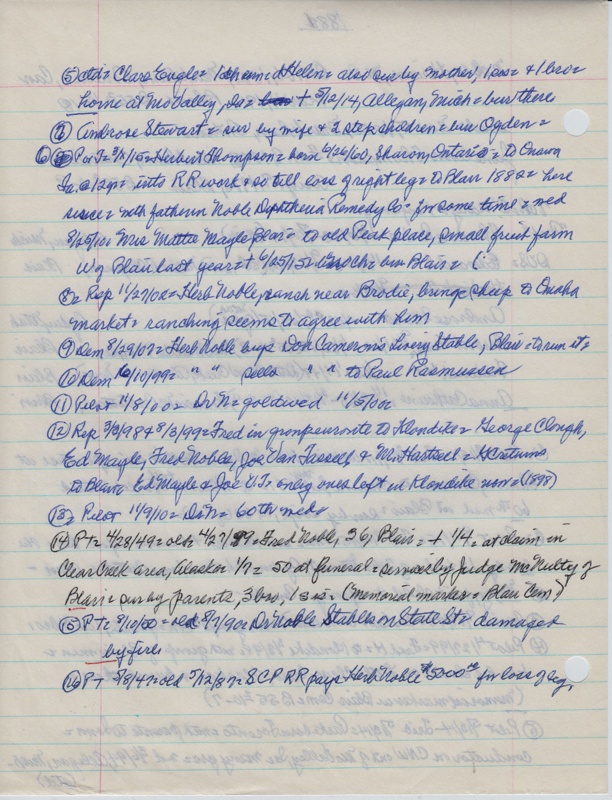 ⑤ ctd = Clara Engle = 1 dh and Helen = also sur by mother, 1 sis = & 1 bro =
home at Mo Valley, Ia = + 5/12/14, Allegan, Mich = bur there
⑦ Ambrose Stewart = sur by wife & 2 step children = bur Ogden =
⑥ P or T = 3/ /15 = Herbert Thompson = born 6/26/60, Sharon, Ontario = to Onawa
Ia. @ 12 yr = into RR work & so till loss of right leg = to Blair 1882 = here
since = with father in Noble Diphtheria Remedy Co = for some time = wed
8/25/10 = Mrs Mattie Mayle Blair = to old Peak place, small fruit farm
W of Blair last year = + 6/25/15 = ch = bur Blair = (
⑧ = Rep 11/27/02 = Herb Noble, ranch near Brodie, brings sheep to Omaha
market = ranching seems to agree with him
⑨ Dem 8/29/07 = Herb Noble buys Don Cameron's Livery Stable, Blair = to run it =
⑩ Dem 10/10/99 = " " sells " " to Paul Rasmussen
⑪ Pilot 11/8/00 = Dr N = gold wed 11/5/00
⑫ Rep 3/3/98 & 8/3/99 = Fred in group enroute to Klondike = George Clough,
Ed Mayle, Fred Noble, Joe Van Tassell & M. Hartsell = returns
to Blair Ed Mayle & Joe V.T. only ones left in Klondike now = (1898)
⑬ = Pilot 11/9/10 = Dr N = 60th wed =
⑭ PT = 4/28/49 = old = 4/27/99 = Fred Noble, 36, Blair = + 1/4 = at claim in
Clear Creek area, Alaska 1/7 = 50 at funeral = services by Judge McNulty of
Blair = sur by parents, 3 bro, 1 sis = (memorial marker = Blair Cem)
⑮ PT = 8/10/50 = old 8/7/90 = Dr Noble Stables on State St = damaged
by fire
⑯ PT 5/8/47 = old 5/12/87 = SCP RR pays Herb Noble $5000.00 for loss of leg,